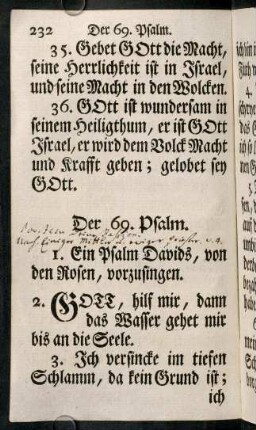 232 Der 69. Psalm.
35. Gebet GOtt die Macht,
seine Herrlichkeit ist in Israel,
und seine Macht in den Wolcken.
36. GOtt ist wundersam in
seinem Heiligthum, er ist GOtt
Israel, er wird dem Volck Macht
und Krafft geben; gelobet sey
GOtt.
Der 69. Psalm.
1. Ein Psalm Davids, von
den Rosen, vorzusingen.
2. GOTT, hilf mir, dann
das Wasser gehet mir
bis an die Seele.
3. Ich versincke im tiefen
Schlamm, da kein Grund ist;
ich